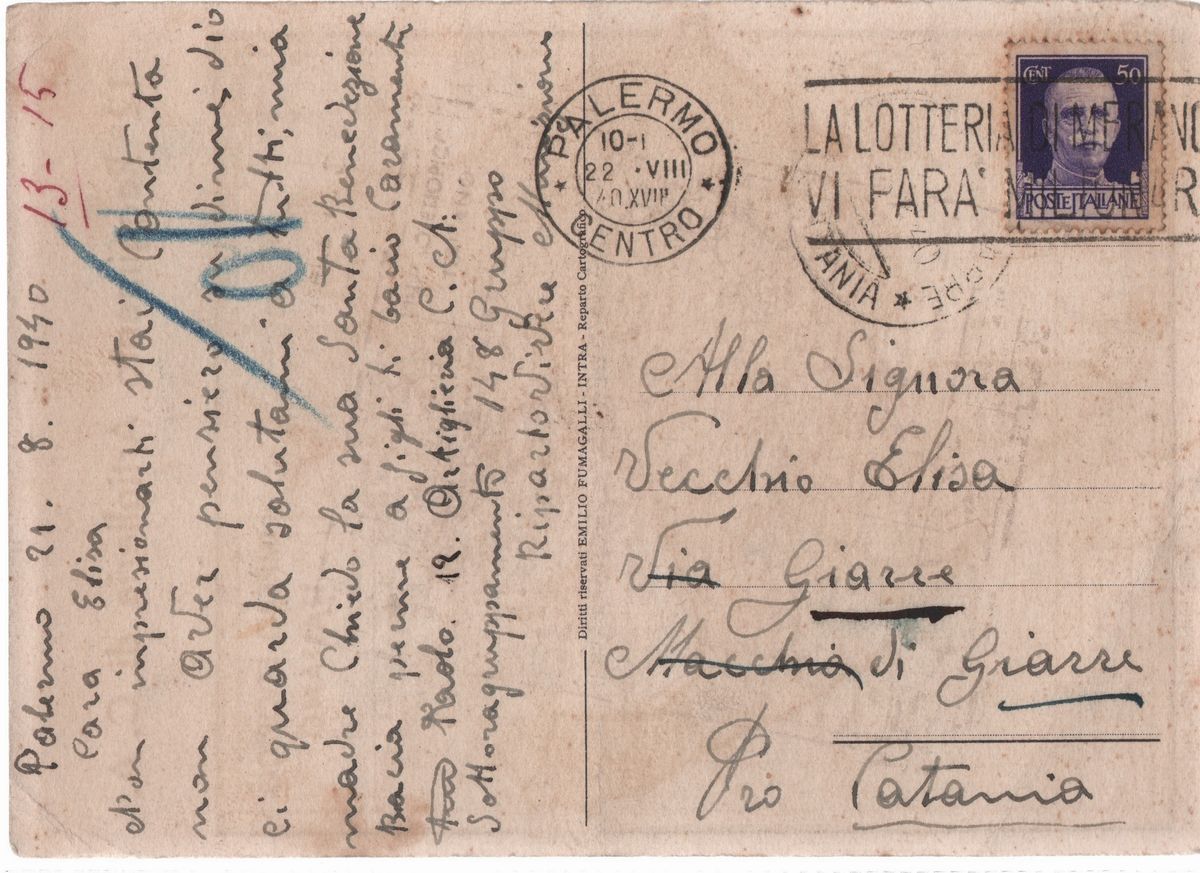 13-15
Palermo 21. 8. 1940
Cara Elisa
Non inpresionarti stai Contenta
non Aver pensiero di dio
ci guarda salutami a tutti, mia
madre Chiedo la sua Santa Benedizione
Bacia i figli ti bacio Caramente
12. Artiglieria C. A.
Sottoragruppamento 148 Gruppo
Riparto Viveri e Munizioni
Diritti riservati EMILIO FUMAGALLI - INTRA - Reparto Cartografico
PALERMO
Pce CENTRO
10-
22 . VIII
40.XVIII
LA LOTTERIA DI MERANO
VI FARA' MILIONARI
CENT 50
POSTE ITALIANE
Alla Signora
Vecchio Elisa
Via Giarre
Macchia di Giarre
Pro Catania